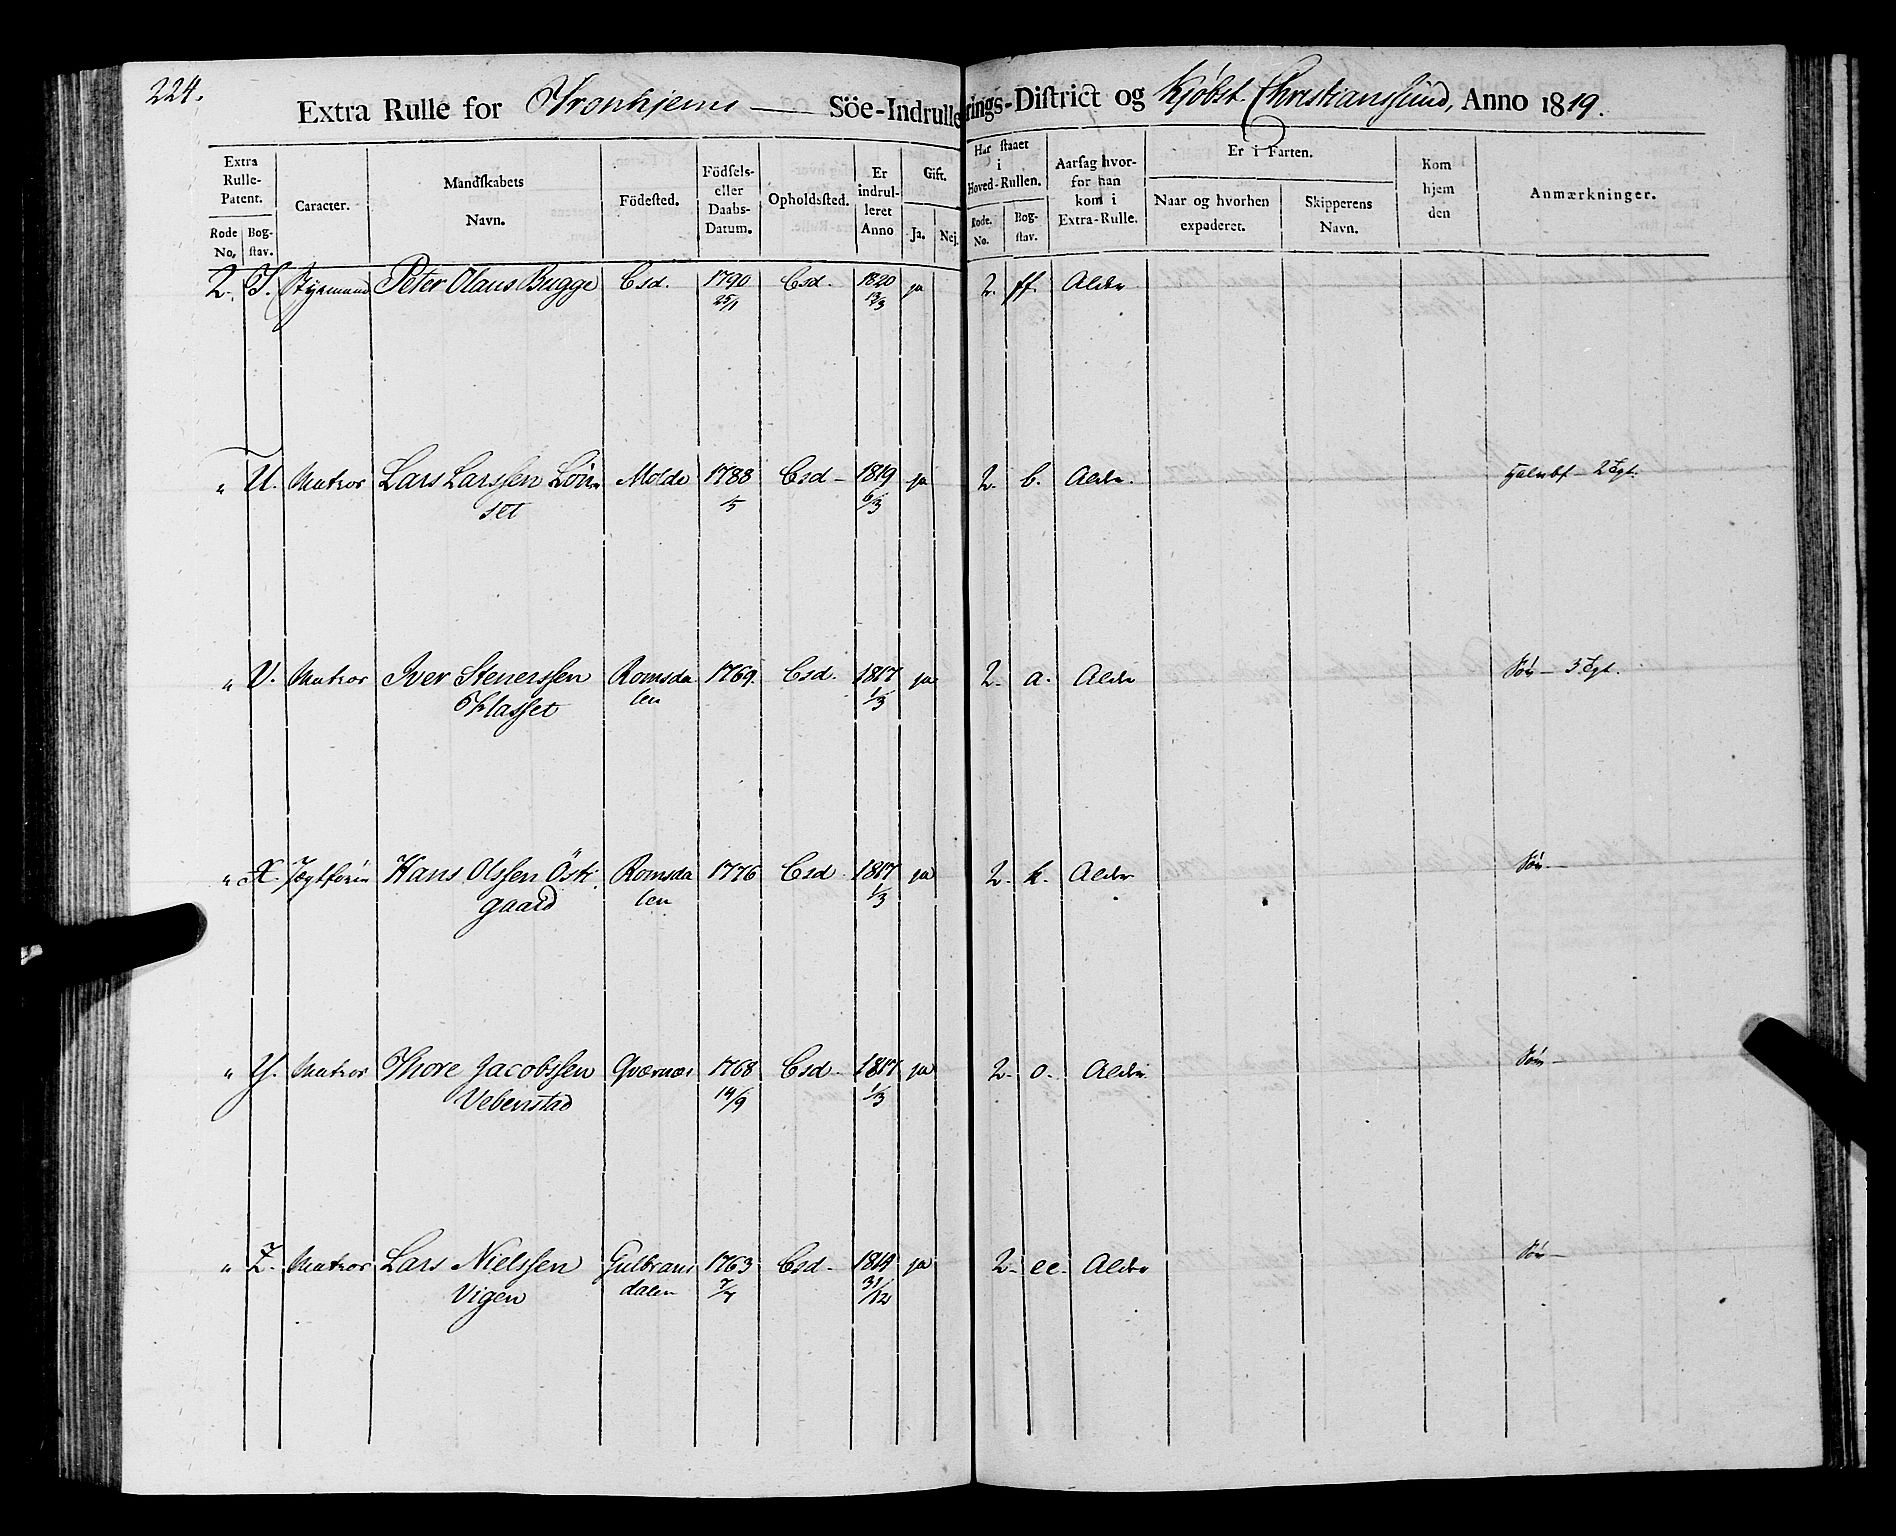 224.
Extra Rulle for Tronhjems — Söe-Indrullerings-District og Kjøbst. Christianssund, Anno 1819.
Extra Rulle-Patent. Caracter. Mandskabets Navn. Födested. Födsels- eller Daabs-Datum. Opholdsted. Er indrulleret Anno Gift. Har staaet i Hoved-Rullen. Aarsag hvorfor han kom i Extra-Rulle. Er i Farten. Kom hjem den Anmærkninger.
Rode No. Bogstav. Ja. Nej. Rode. No. Bogstav. Naar og hvorhen expederet. Skipperens Navn.
2. T. Styrmand Peter Olaus Bugge Csd. 1790 Csd. 1820 ja 2. ff. Alder
25/1 13/3
" U. Matros Lars Larssen Lön- Molde 1788 Csd - 1819 ja 2. b. Alder. 2
set /5 6/3
" V. Matros Iver Stenerssen Romsda 1769. Csd. 1817 ja 2. a. Alder 3
Klasset len 1/3
" X. Jægtförer Hans Olssen Öst- Romsda 1776 Csd 1817 ja 2. k. Alder
gaard len 1/3
" Y. Matros Thore Jacobssen Qværnæs 1768 Csd - 1817 ja 2. o. Alder
Vebenstad 14/9 1/3
" Z. Matros Lars Nielssen Gulbrans 1763 Csd - 1814 ja 2. ee. Alder
Vigen dalen 7/4 31/12